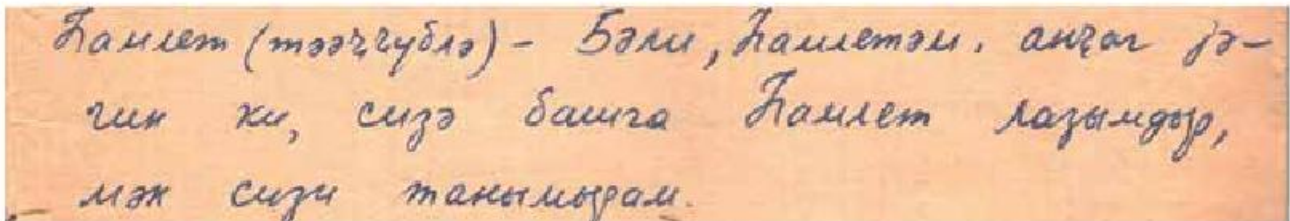 Һамлет (тәәҹҹүблә) – Бәли, Һамлетәм. анҹаг јә-
гин ки, сизә башга Һамлет лазымдыр,
мән сизи танымырам.